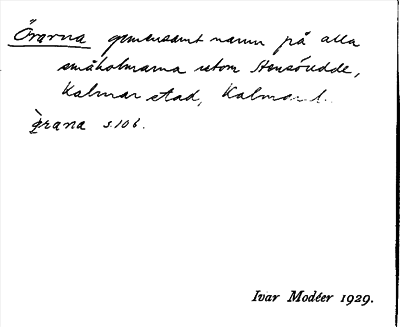 Örarna gemensamt namn på alla
småholmarna utom Stensöudde,
Kalmar stad, Kalmar l.
s. 106.
Ivar Modéer 1929.